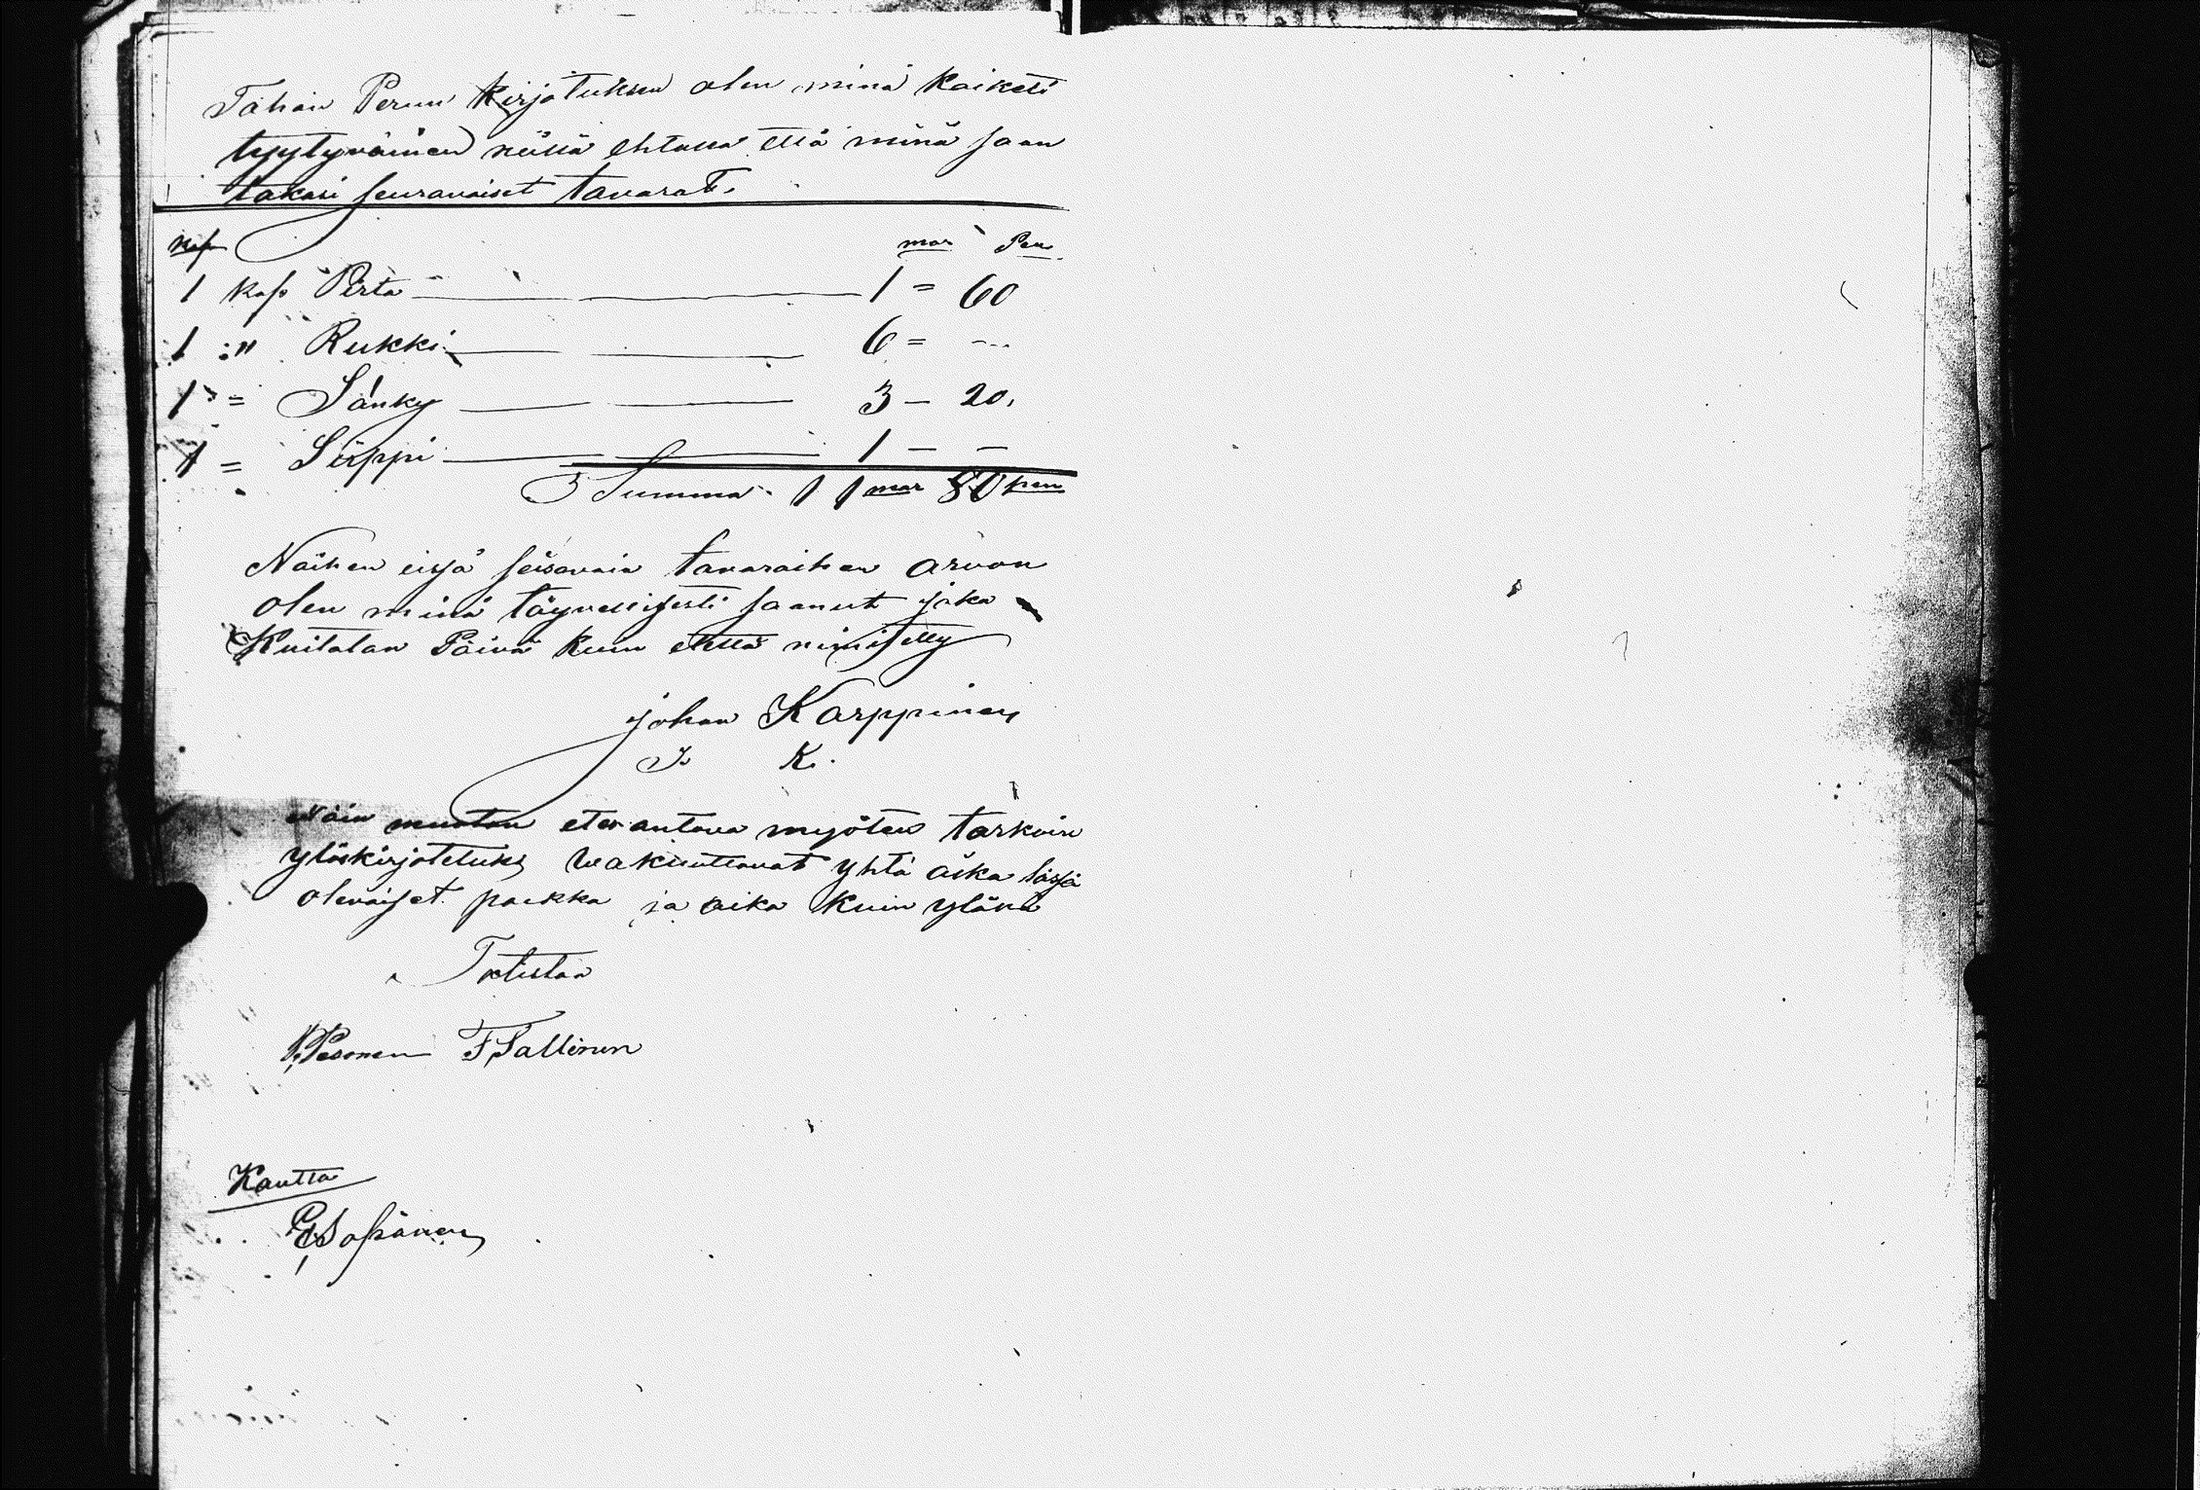 Tähän Perun kirjotuksen olen minä kaiketi
tyytyväinen niissä ehtossa että minä saan
takasi seuravaiset tavarat.
kap mar Pen
1 kap Pirta 1 = 60
1 :" Rukki 6 = ---
1 = Sänky 3 - 20,
1 = Sirppi 1 - -
Summa 11 mar 80 pen
Näihen eissä seisovain tavaraihen arvon
olen minä täyvellisesti saanut joka
Kuitatan Päivä kuin elellä nimitetty
johan Karppinen
J. K.
Näin muoton eten antava myöten tarkoin
ylöskirjotetuks wakuuttavat yhtä aika läsjä
olevaiset paikka ja aika kuin ylänä
Totistaa
P. Pesonen F. Tallinen
Kautta